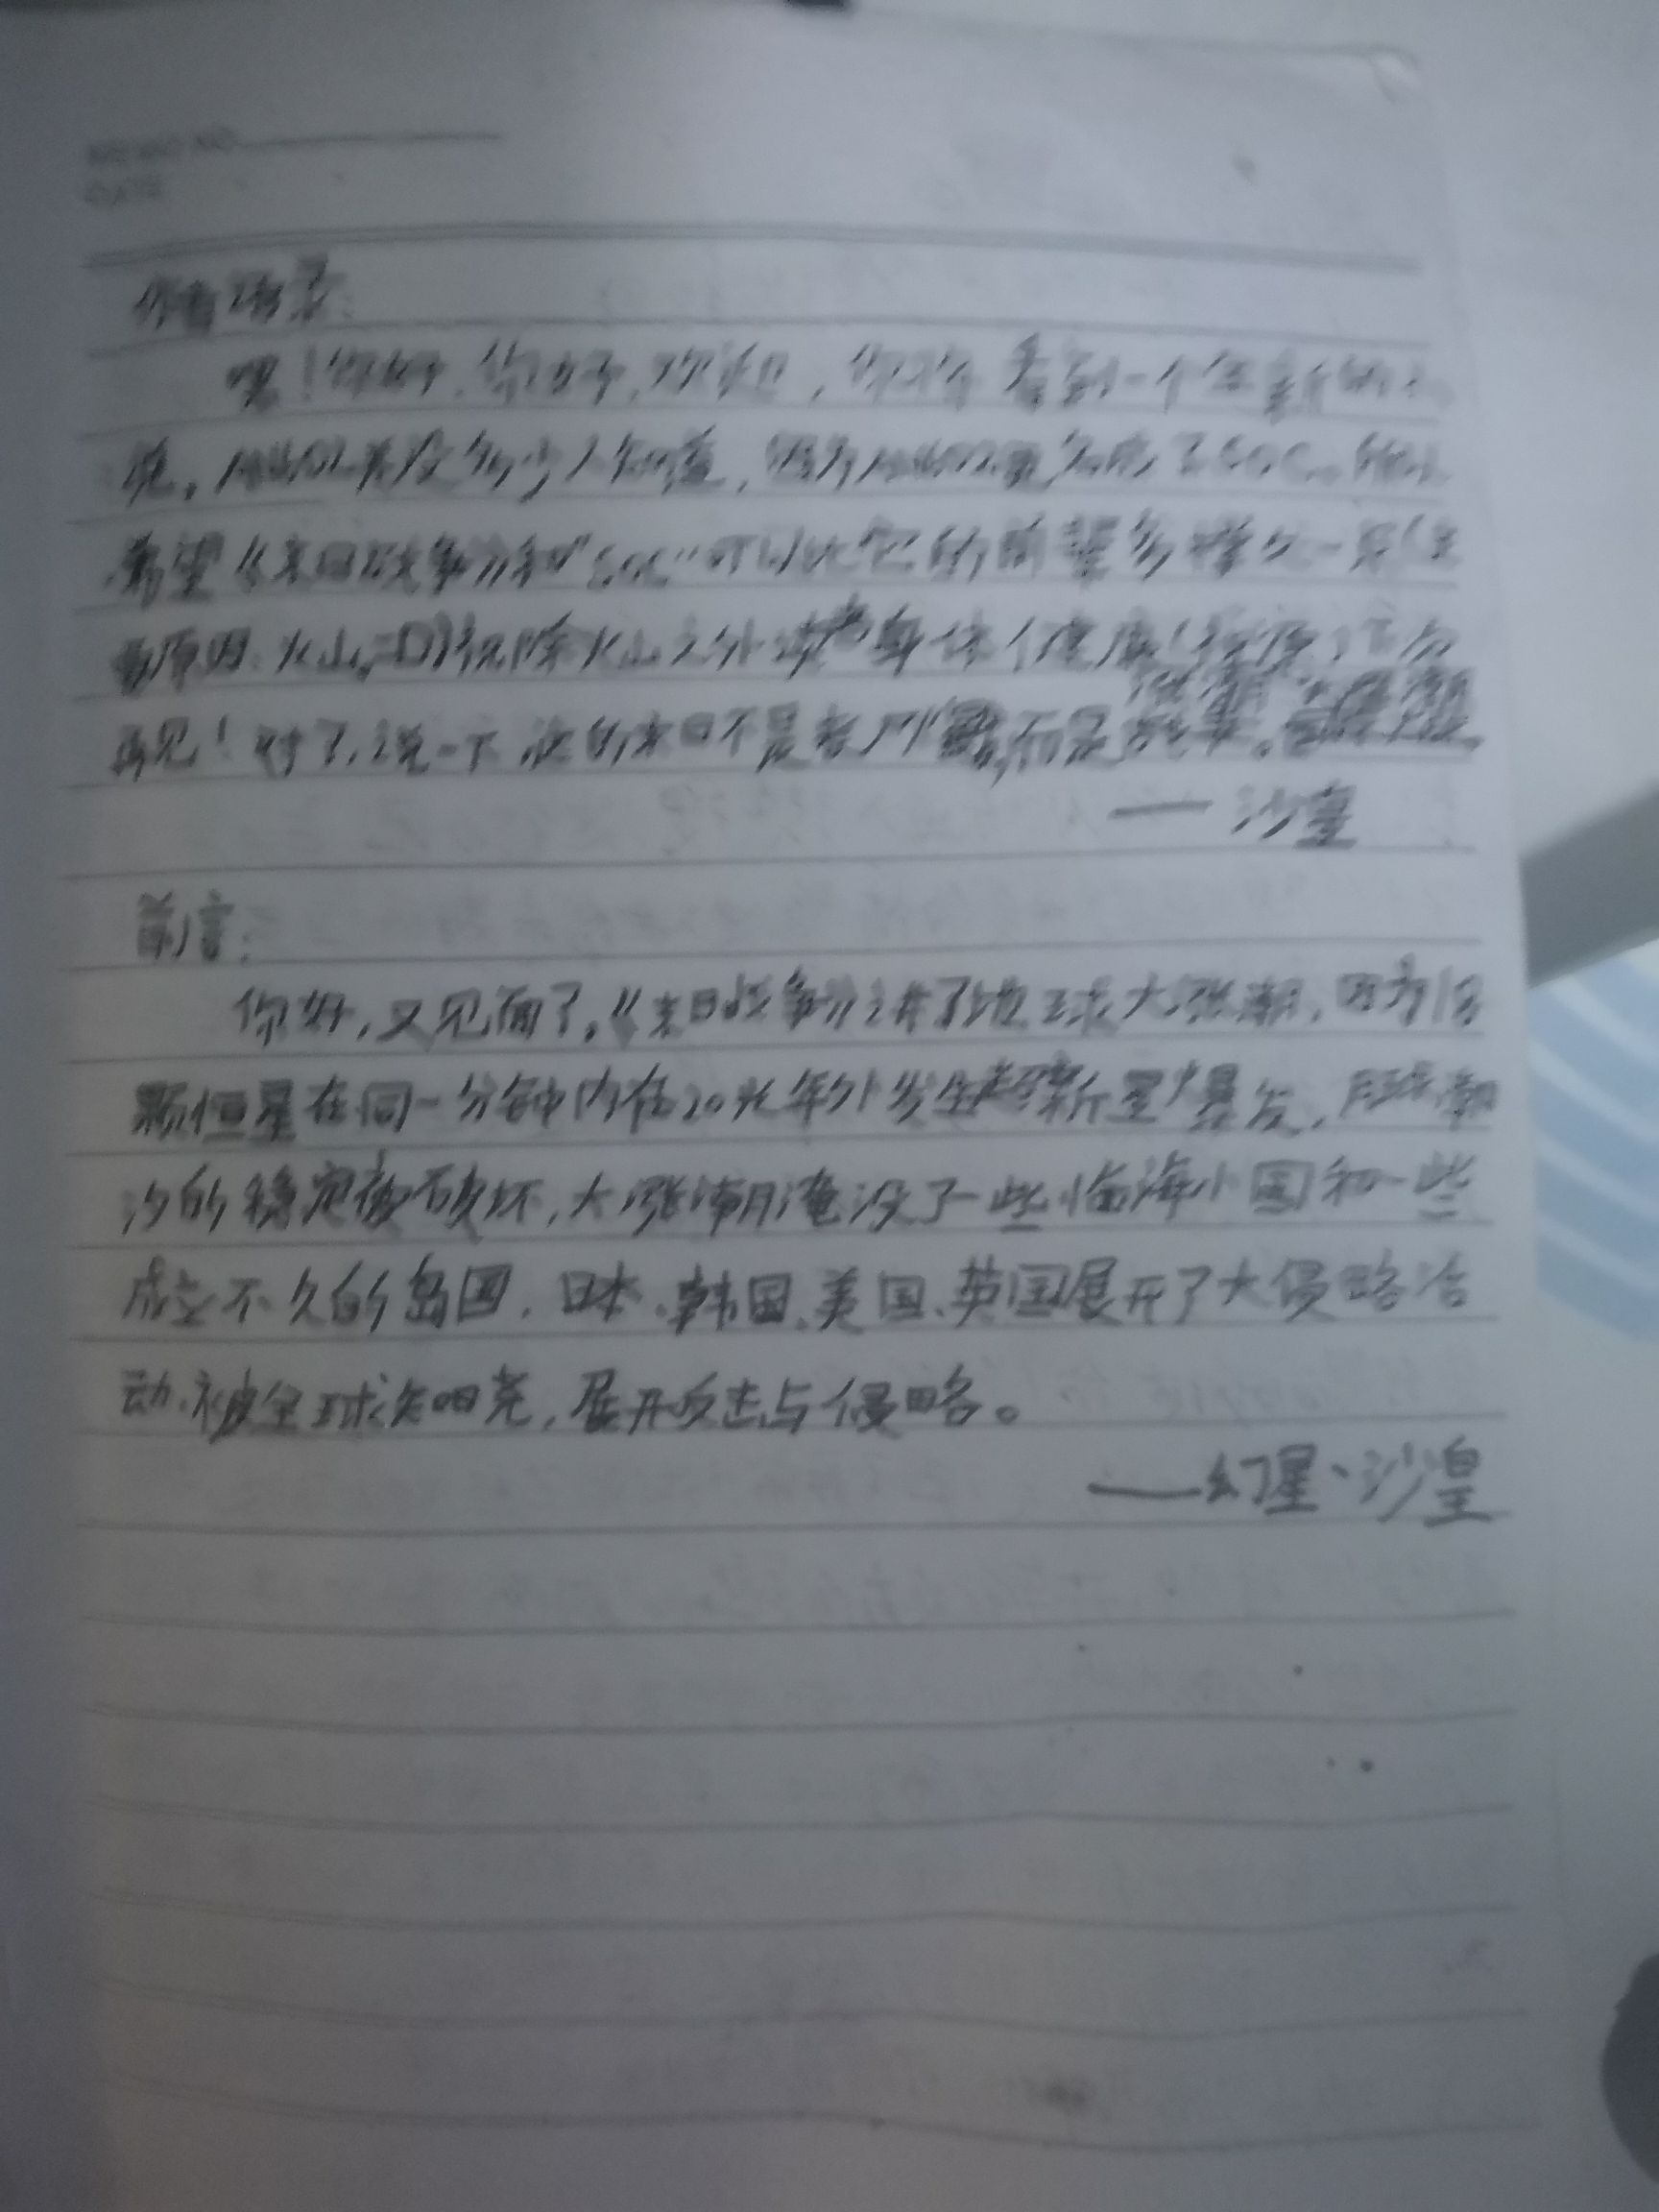 MEMO NO.
DATE
作者语录:
嘿!你好,你好,欢迎,你将看到一个全新的小
说,并没多少人知道,因为
希望《末日战争》和可以比它的前辈多撑久一点(主
要原因:火山。=D)祝除火山之外读者身体健康,下勿
再见!对了,说一下,这的末日不是,而是
——沙皇
前言:
你好,又见面了,《末日战争》讲了地球大涨潮,因为18
颗恒星在同一分钟内在20光年外发生超新星爆发,月球潮
汐的稳定被破坏,大涨潮淹没了一些临海小国和一些
成立不久的岛国,日本、韩国、美国、英国展开了大侵略活
动,被全球知晓,展开反击与侵略。
——幻星、沙皇